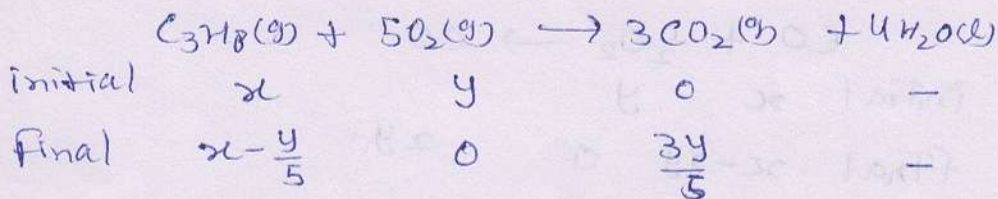 C₃H₈(g) + 5O₂(g) ⟶ 3CO₂(g) + 4H₂O(l)
initial x y 0 –
final x - y/5 0 3y/5 –